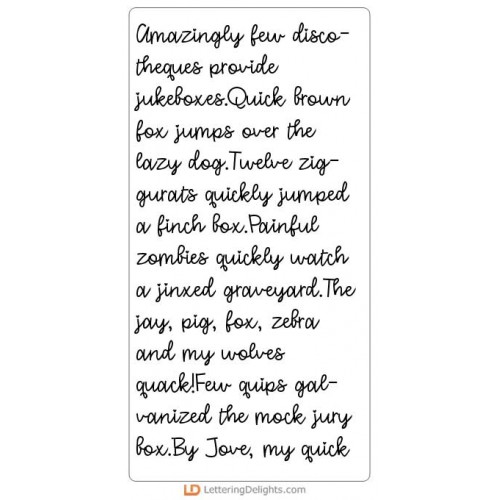 Amazingly few disco-
theques provide
jukeboxes.Quick brown
fox jumps over the
lazy dog.Twelve zig-
gurats quickly jumped
a finch box.Painful
zombies quickly watch
a jinxed graveyard.The
jay, pig, fox, zebra
and my wolves
quack!Few quips gal-
vanized the mock jury
box.By Jove, my quick
LD LetteringDelights.com